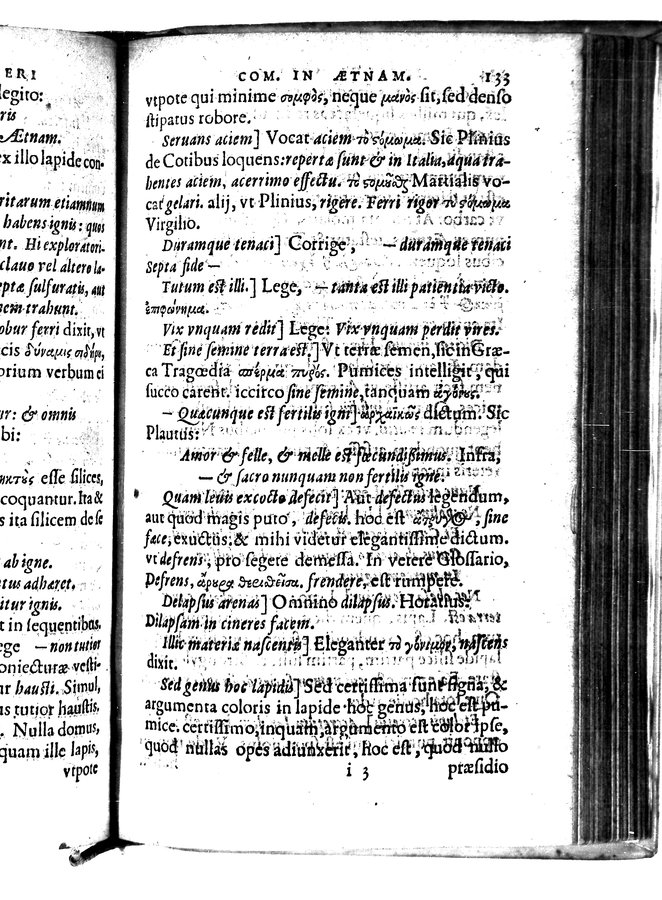 ERI
legito:
ris
Ætnam.
ex illo lapide con-
ritarum etiamnum
habens ignis: quos
nt. Hi exploratori-
clauo vel altero la-
eptæ sulfuratis, aut
nem trahunt.
obur ferri dixit, vt
cis δύναμις σιδήρου,
prium verbum ei
ur: & omnis
bi:
esse silices,
coquantur. Ita &
s ita silicem de se
ab igne.
tus adhæret.
itur ignis.
t in sequentibus.
ege — non tutior
oniecturæ vesti-
ur hausti. Simul,
us tutior haustis,
. Nulla domus,
quam ille lapis,
vtpote
COM. IN ÆTNAM. 133
vtpote qui minime σομφὸς, neque μανὸς sit, sed denso
stipatus robore.
Seruans aciem] Vocat aciem τὸ σόμωμα. Sic Plinius
de Cotibus loquens: repertæ sunt & in Italia, aqua tra-
hentes aciem, acerrimo effectu. Martialis vo-
cat gelari. alij, vt Plinius, rigere. Ferri rigor τὸ σόμωμα
Virgilio.
Duramque tenaci] Corrige, — duramque tenaci
Septa fide —
Tutum est illi.] Lege, — tanta est illi patientia victo.
ἐπιφώνημα.
Vix vnquam redit] Lege: Vix vnquam perdit vires.
Et sine semine terra est.] Vt terræ semen, sic in Græ-
ca Tragœdia σπέρμα πυρὸς. Pumices intelligit, qui
succo carent. iccirco sine semine, tanquam ἄγονος.
— Quæcunque est fertilis igni] ἀρχαϊκῶς dictum. Sic
Plautus:
Amor & felle, & melle est fœcundißimus. Infra,
— & sacro nunquam non fertilis igne.
Quam leuis excocto defecit] Aut defectus legendum,
aut quod magis puto, defecis. hoc est sine
face, exuctus: & mihi videtur elegantissime dictum.
vt defrens, pro segete demessa. In vetere Glossario,
Defrens, frendere, est rumpere.
Delapsus arenas] Omnino dilapsus. Horatius:
Dilapsam in cineres facem.
Illic materiæ nascentis] Eleganter τὸ γόνιμον, nascens
dixit.
Sed genus hoc lapidis] Sed certissima sunt signa, &
argumenta coloris in lapide hoc genus, hoc est pu-
mice. certissimo, inquam, argumento est color ipse,
quod nullas opes adiunxerit, hoc est, quod nullo
i 3 præsidio